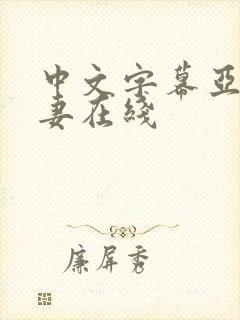 中文字幕亚
妻在线
廉屏秀